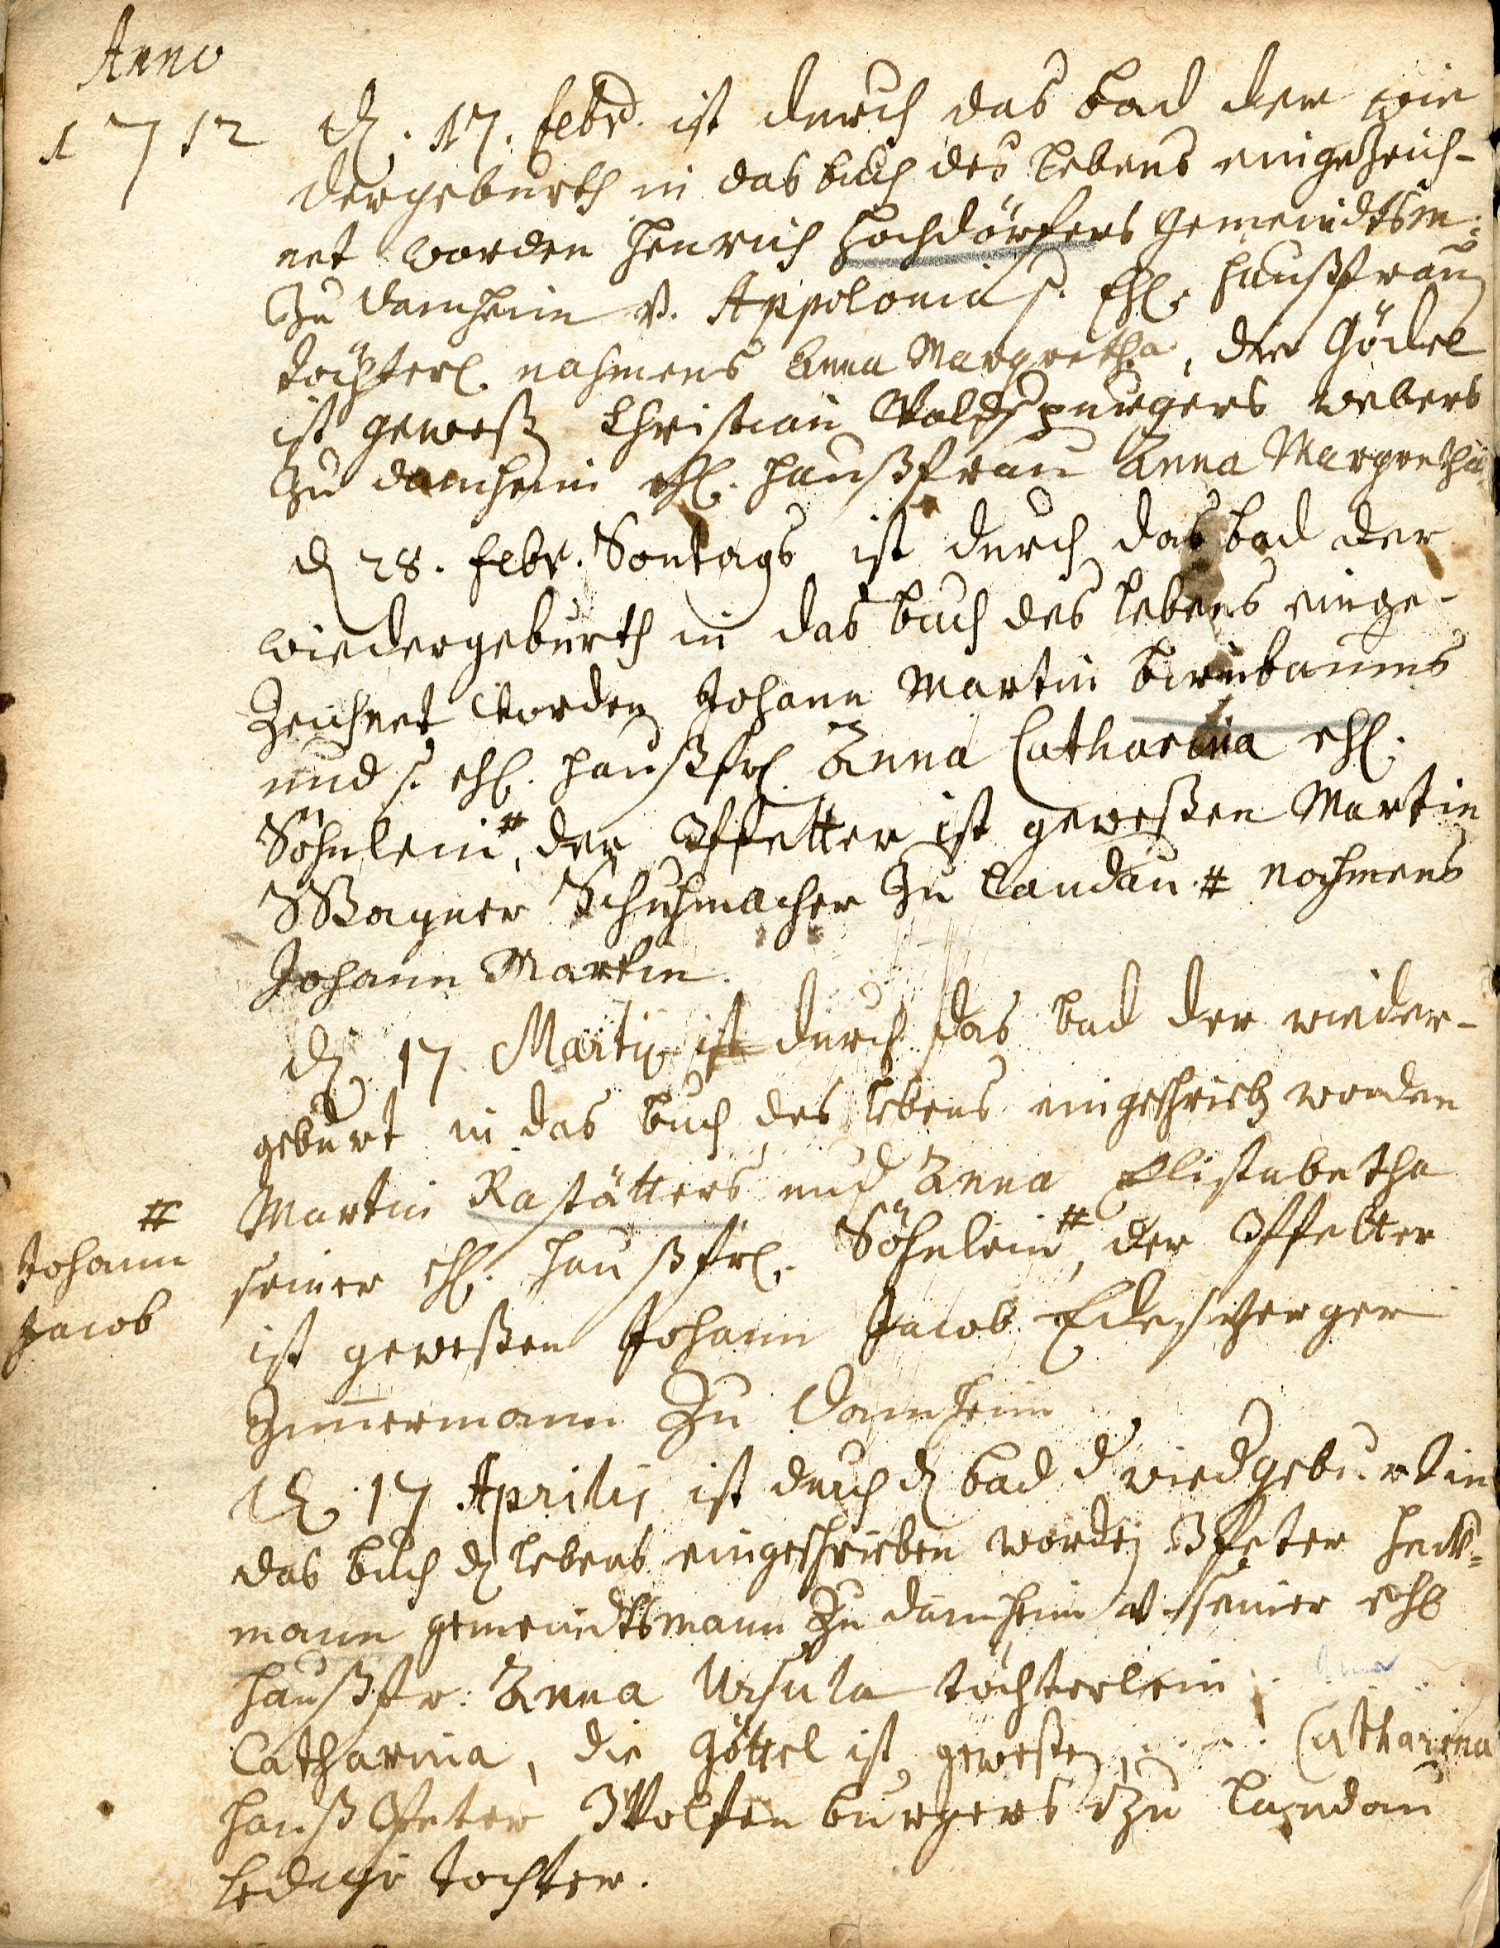 Anno
1712 d. 17. febr. ist durch das bad der wie
dergeburth in das buch des lebens eingezeich-
net worden Henrich Hochdörfers gemeindtsm:
zu damheim v. Appolonia s. Ehl. haußfrau
töchterl. nahmens Anna Margretha, die Gödel
ist geweß Christian Waldspurgers webers
zu damheim ehl. haußfrau Anna Margretha
d 28. febr. Sontags ist durch das bad der
wiedergeburth in das buch des lebens einge-
zeichnet worden Johann Martin birnbaums
und s. ehl. haußfr. Anna Catharina ehl.
Söhnlein #, der Pffetter ist geweßen Martin
Wagner Schuhmacher zu landau # nahmens
Johann Martin.
d. 17 Martij ist durch das bad der wieder-
geburt in das buch des lebens eingeschrieb worden
Martin Rastätters und Anna Elisabetha
# Johann Jacob
seiner ehl. haußfr. Söhnlein #, der Pffetter
ist geweßen Johann Jacob
Zimmermann zu damheim
d. 17 Aprilis ist durch d bad d wiedgeburt in
das buch d lebens eingeschrieben worden Peter heck-
mann gemeindtsmann zu damheim v seiner ehl
haußfr: Anna Ursula töchterlein
Catharina, die Göttel ist geweßen Catharina
hanß Peter Wolffenburgers zu landau
ledige tochter.